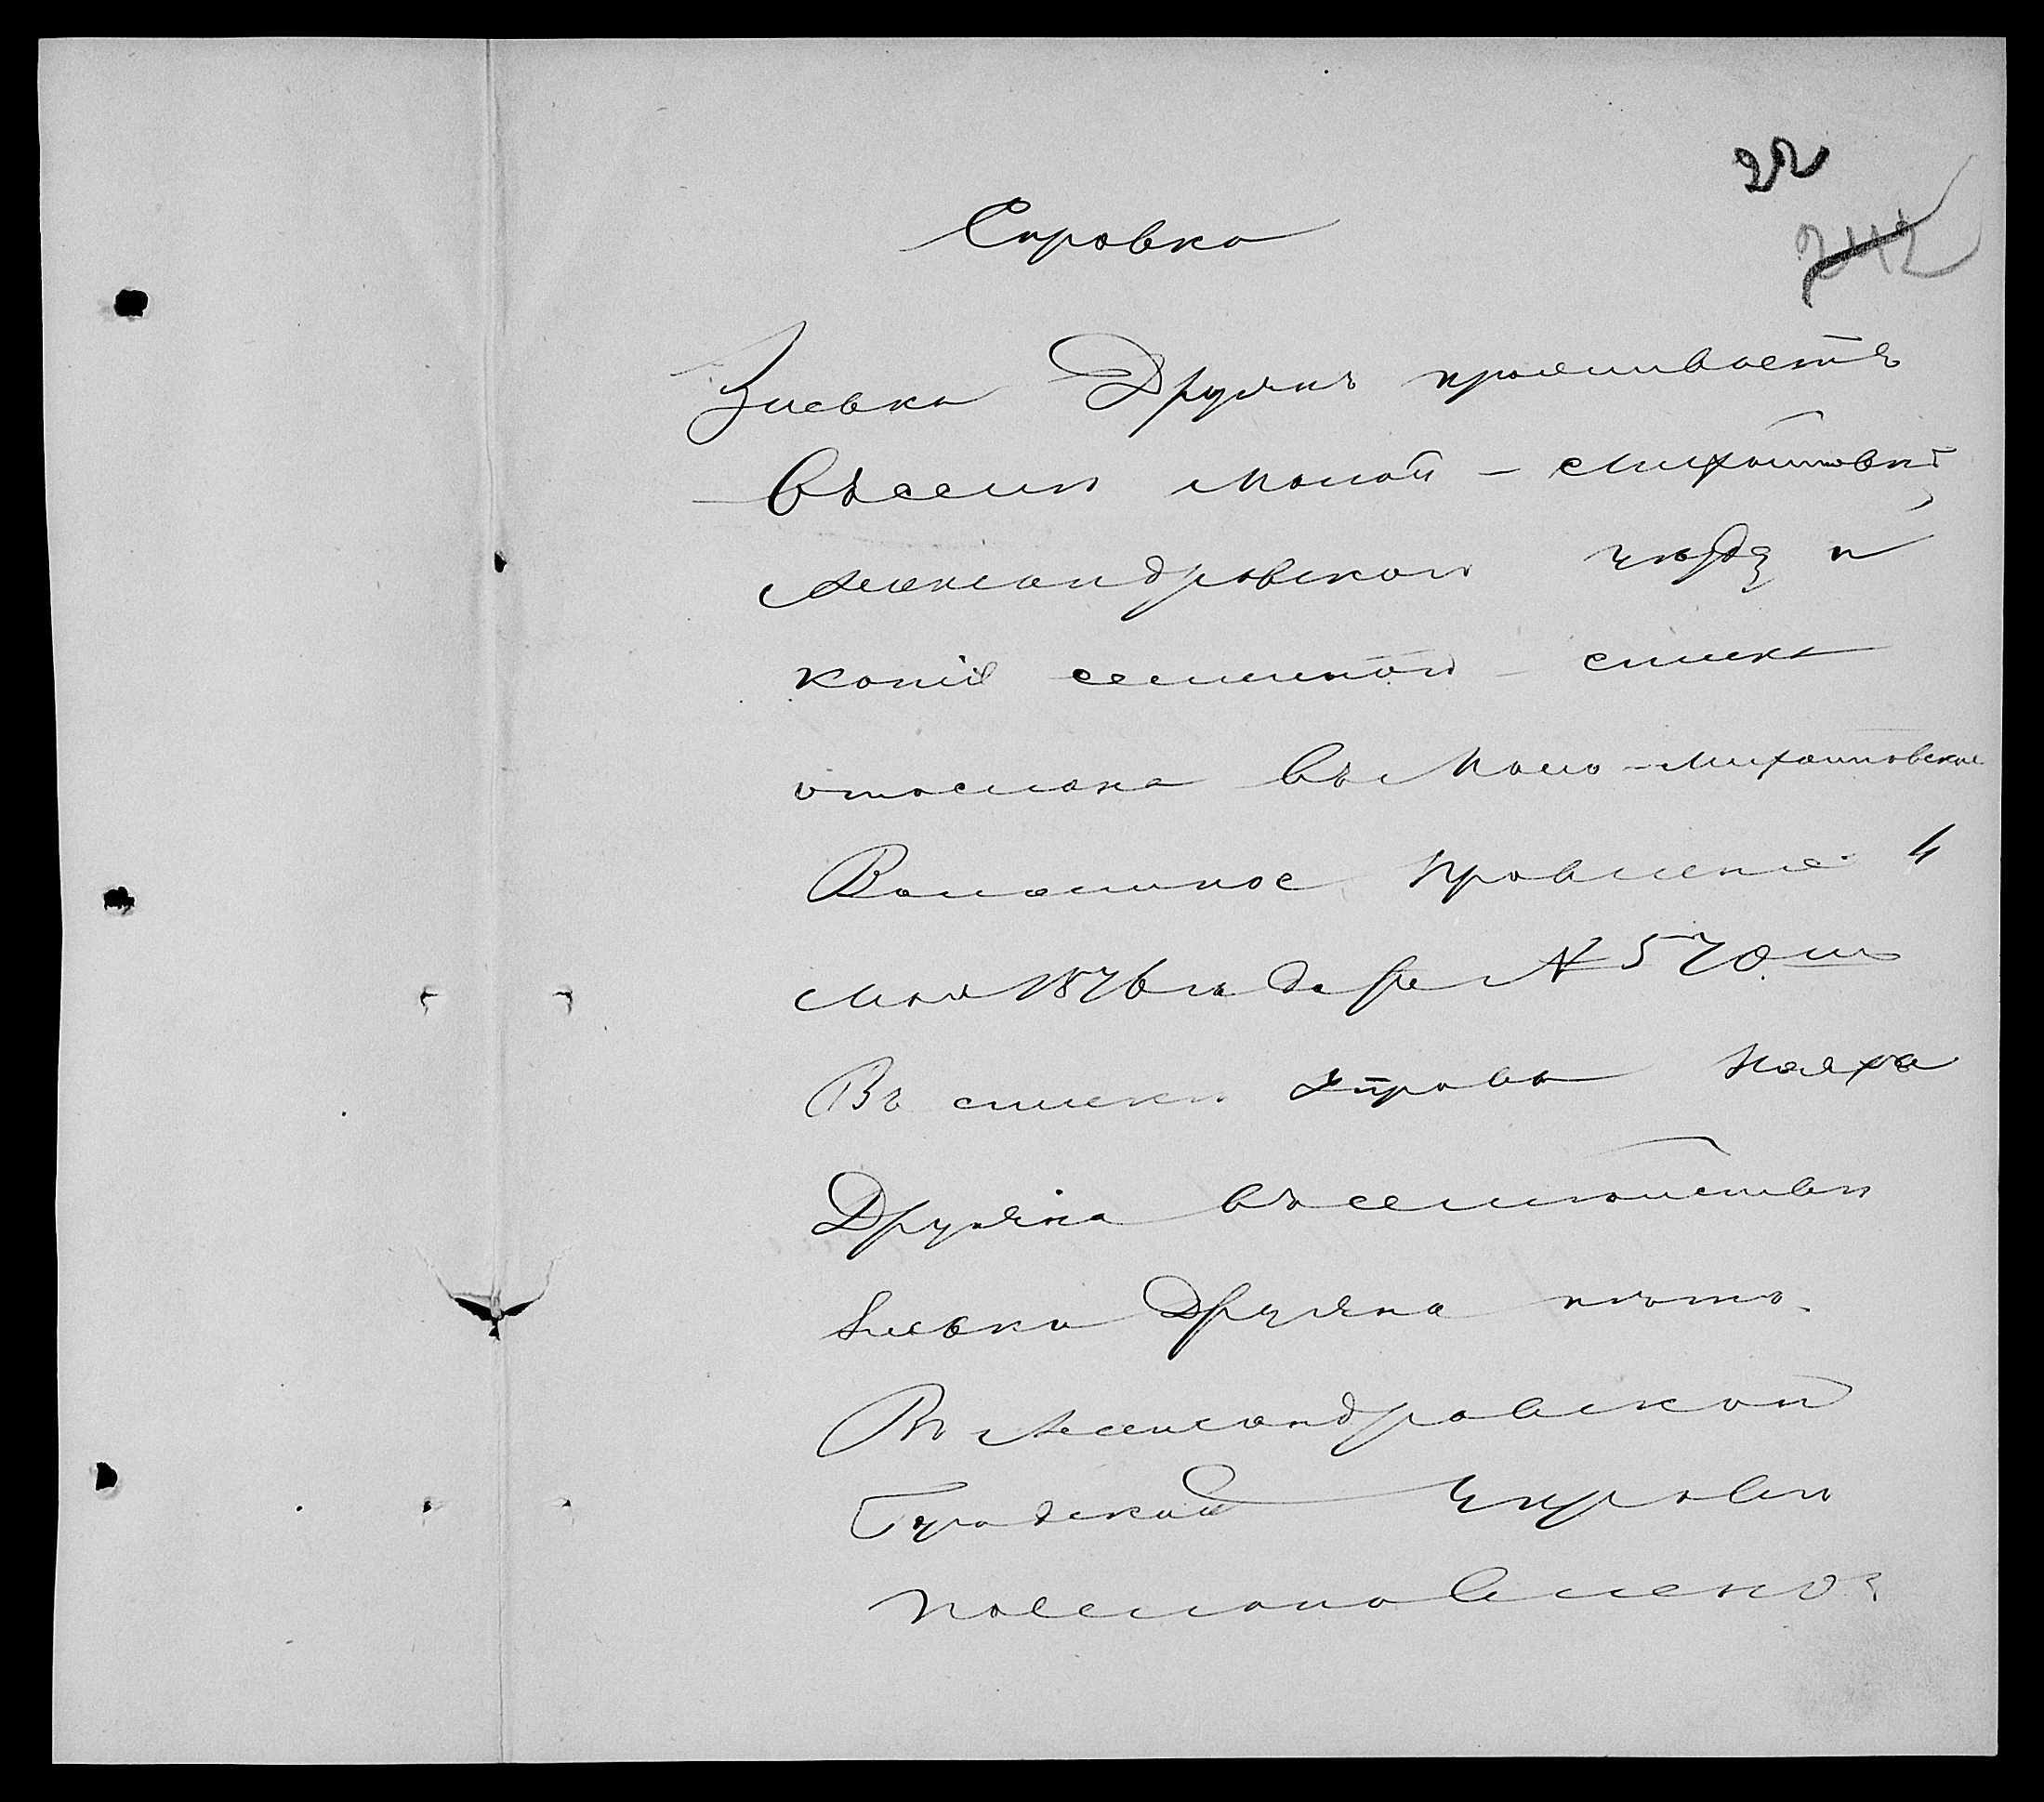 22
242
Справка
Зиевка Друянъ проживаетъ
въ селѣ Малой-Михайловкѣ
Александровскаго уѣзда и
копія семейного списка
отослана въ Мало-Михайловское
Волостное Правленіе 4
Мая 1876 года за № 570.
Въ списки Управы Наяха
Друяна въ семействѣ
Зиевки Друяна нѣтъ.
Въ Александровской
Городской Управѣ
постановлено: